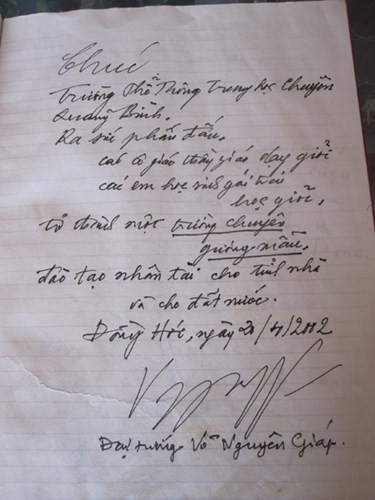 Chúc
Trường Phổ Thông Trung học Chuyên
Quảng Bình.
Ra sức phấn đấu,
các cô giáo thầy giáo dạy giỏi
các em học sinh gái trai
học giỏi,
trở thành một trường chuyên
gương mẫu,
đào tạo nhân tài cho tỉnh nhà
và cho đất nước.
Đồng Hới, ngày 20/11/2002
Đại tướng Võ Nguyên Giáp.